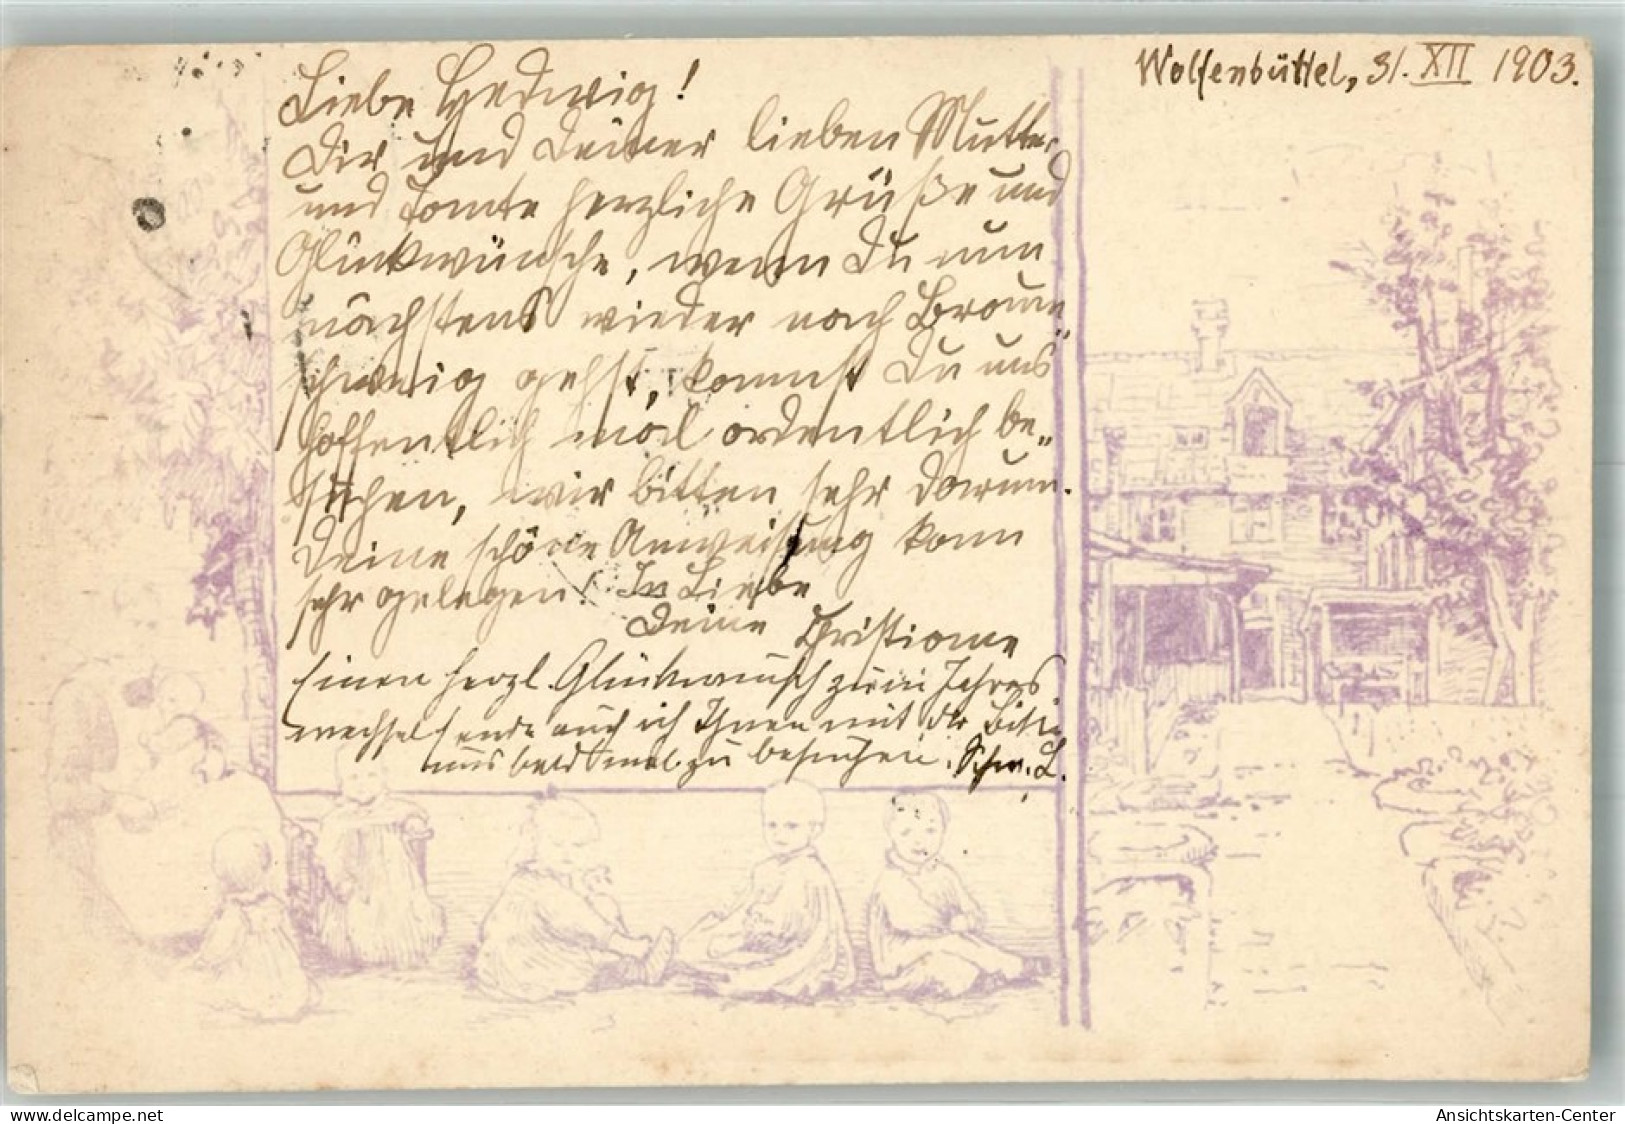 Wolfenbüttel, 31. XII 1903.
Liebe Hedwig!
Dir und Deiner lieben Mutter
und Tante herzliche Grüße und
Glückwünsche, wenn Du nun
nächstens wieder nach Braun„
schweig gehst, kommst Du uns
hoffentlich mal ordentlich be„
suchen, wir bitten sehr darum.
Deine schöne Anweisung kam
sehr gelegen! In Liebe
Deine Christiane
Einen herzl. Glückwunsch zum Jahres
wechsel sende auch ich Ihnen mit der Bitte
uns bald mal zu besuchen. Schw. L.
www.delcampe.net
Ansichtskarten-Center